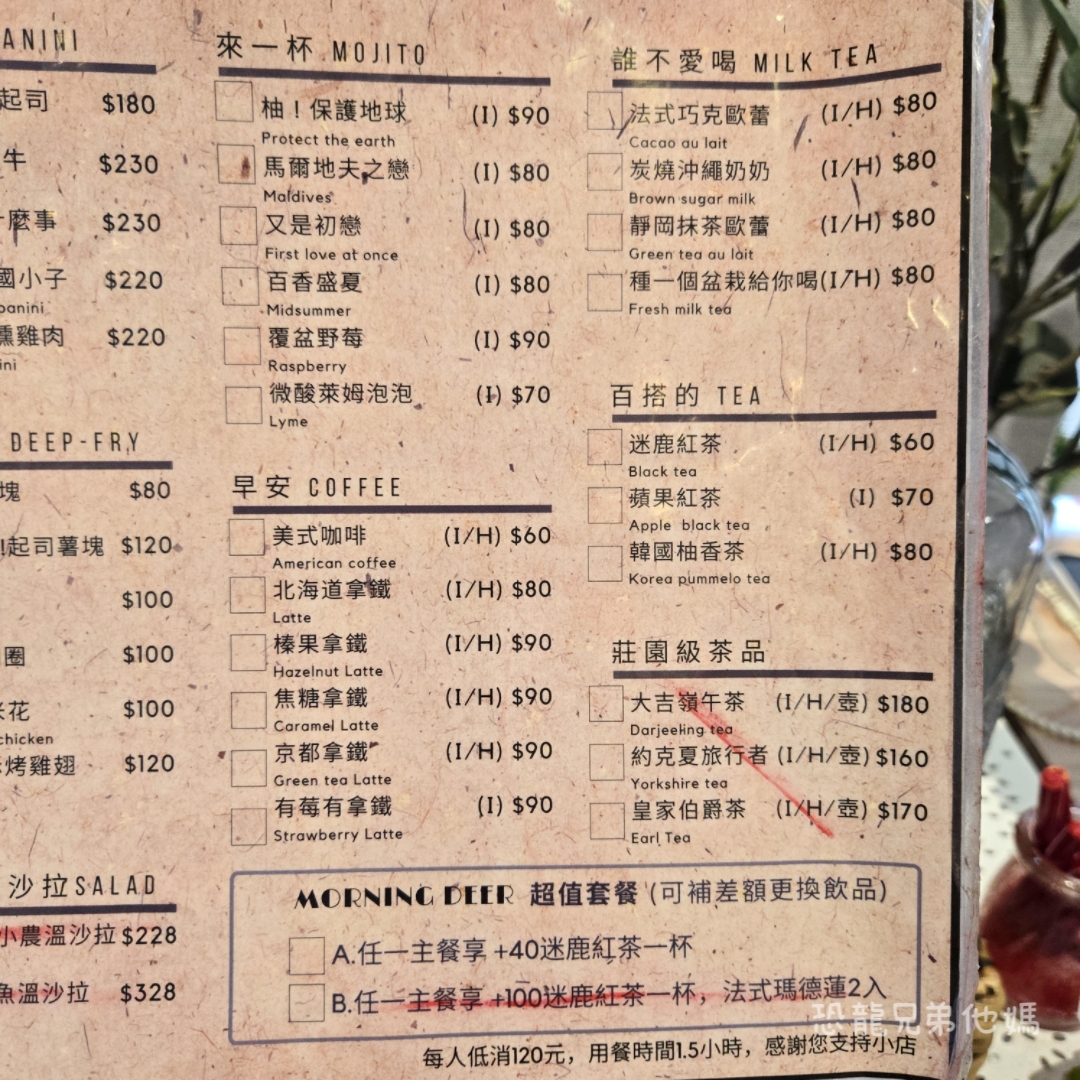 ANINI
起司 $180
牛 $230
麼事 $230
國小子 $220
panini
燻雞肉 $220
ini
DEEP-FRY
塊 $80
!起司薯塊 $120
$100
圈 $100
米花 $100
chicken
烤雞翅 $120
沙拉SALAD
小農溫沙拉 $228
魚溫沙拉 $328
來一杯 MOJITO
柚！保護地球 (I) $90
Protect the earth
馬爾地夫之戀 (I) $80
Maldives
又是初戀 (I) $80
First love at once
百香盛夏 (I) $80
Midsummer
覆盆野莓 (I) $90
Raspberry
微酸萊姆泡泡 (I) $70
Lyme
早安 COFFEE
美式咖啡 (I/H) $60
American coffee
北海道拿鐵 (I/H) $80
Latte
榛果拿鐵 (I/H) $90
Hazelnut Latte
焦糖拿鐵 (I/H) $90
Caramel Latte
京都拿鐵 (I/H) $90
Green tea Latte
有莓有拿鐵 (I) $90
Strawberry Latte
誰不愛喝 MILK TEA
法式巧克歐蕾 (I/H) $80
Cacao au lait
炭燒沖繩奶奶 (I/H) $80
Brown sugar milk
靜岡抹茶歐蕾 (I/H) $80
Green tea au lait
種一個盆栽給你喝(I/H) $80
Fresh milk tea
百搭的 TEA
迷鹿紅茶 (I/H) $60
Black tea
蘋果紅茶 (I) $70
Apple black tea
韓國柚香茶 (I/H) $80
Korea pummelo tea
莊園級茶品
大吉嶺午茶 (I/H/壺) $180
Darjeeling tea
約克夏旅行者 (I/H/壺) $160
Yorkshire tea
皇家伯爵茶 (I/H/壺) $170
Earl Tea
MORNING DEER 超值套餐 (可補差額更換飲品)
A.任一主餐享 +40迷鹿紅茶一杯
B.任一主餐享 +100迷鹿紅茶一杯，法式瑪德蓮2入
每人低消120元，用餐時間1.5小時，感謝您支持小店
恐龍兄弟他媽